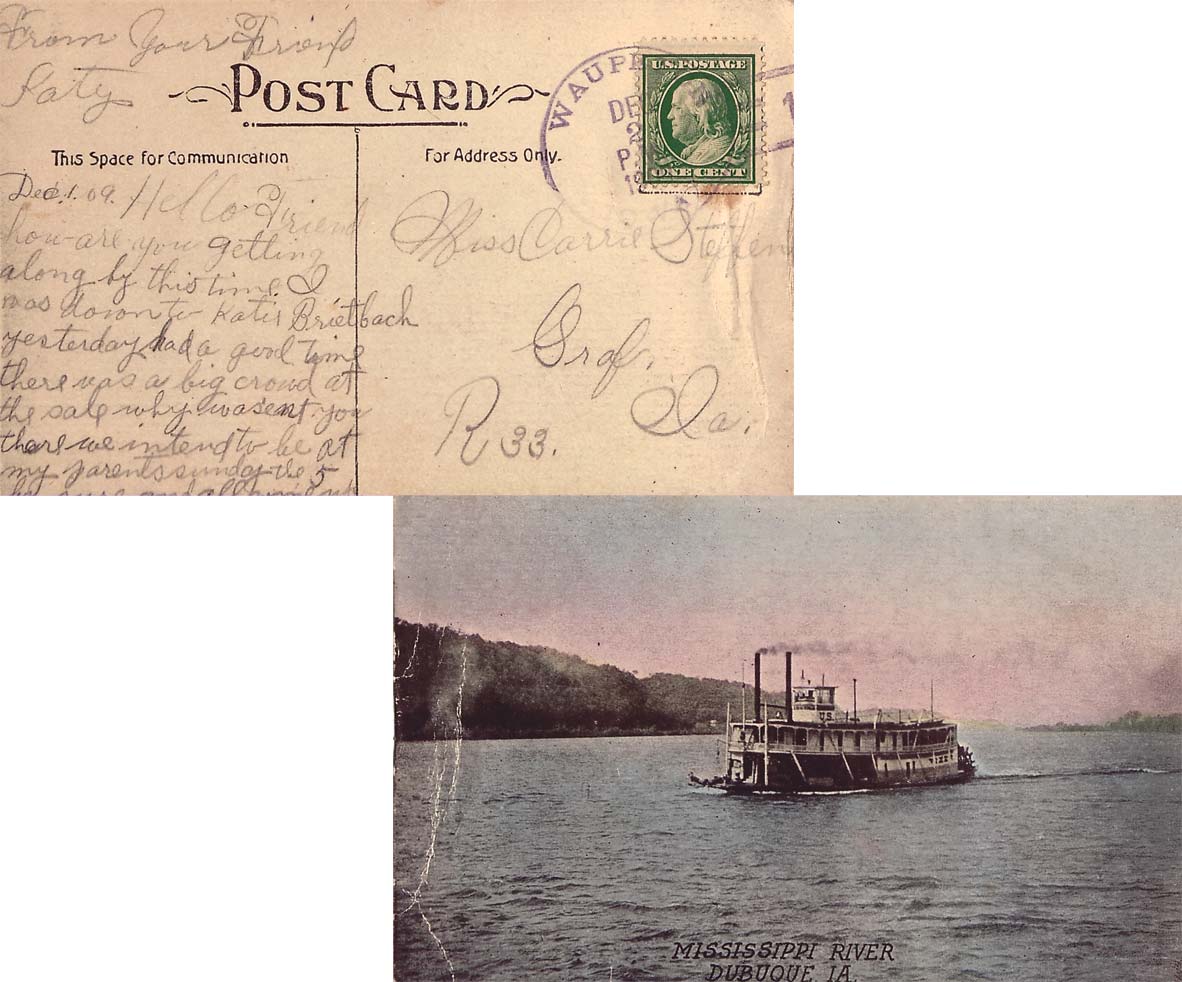 From Your Friend
Katy
POST CARD
This Space for Communication
For Address Only.
WAUPE
DE
2
P
1
U.S. POSTAGE
ONE CENT
Dec. 1. 09. Hello Friend
how are you getting
along by this time I
was down to Katis Brietbach
yesterday had a good time
there was a big crowd at
the sale why wasent you
there we intend to be at
my parents sunday the 5
be sure and all
Miss Carrie Steffen
Graf,
Ia.
R 33.
U.S.
MISSISSIPPI RIVER
DUBUQUE, IA.